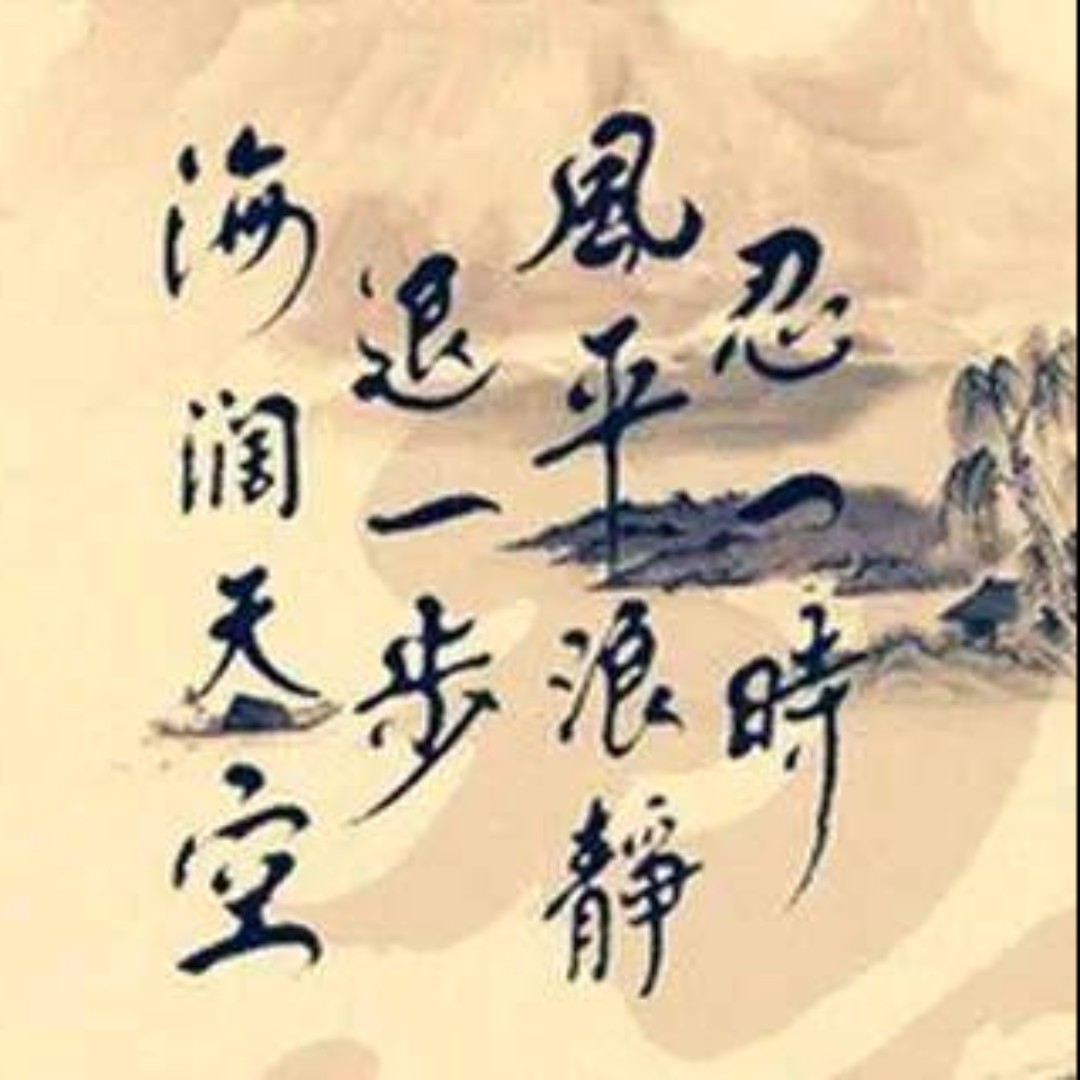 忍一時
風平浪靜
退一步
海阔天空